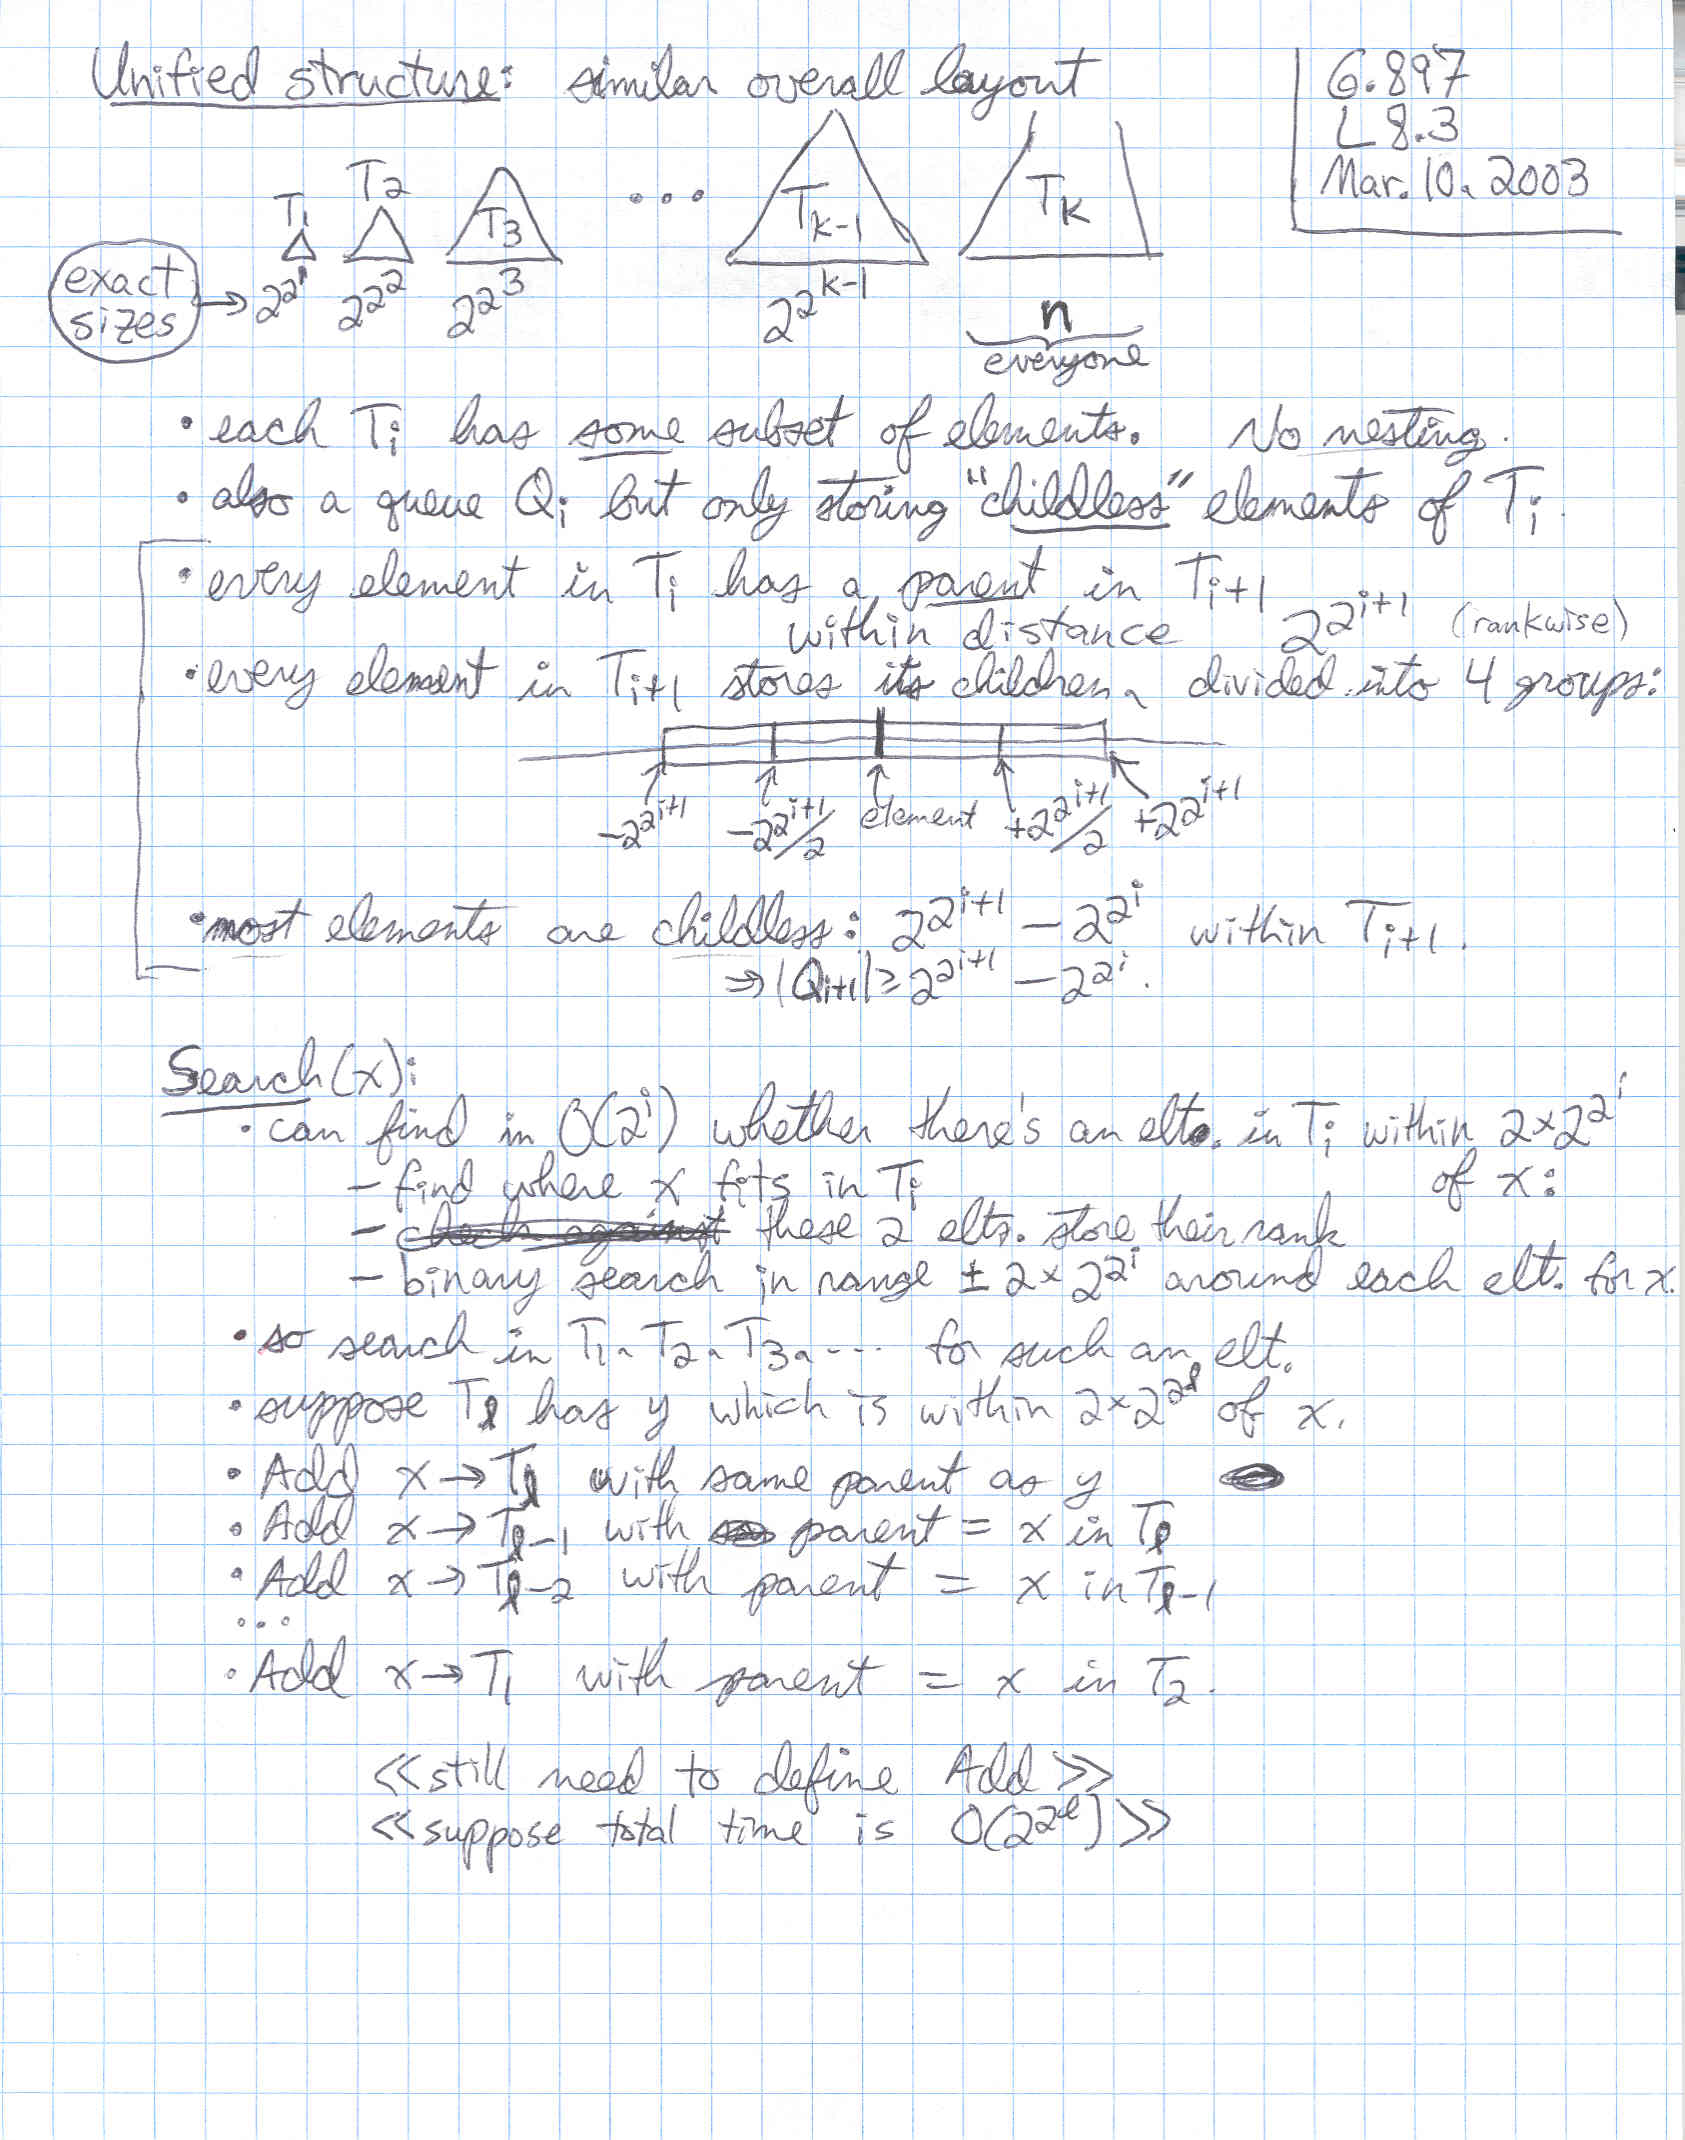 Unified structure: similar overall layout
6.897
L 8.3
Mar. 10, 2003
T₁ T₂ T₃ ... Tₖ₋₁ Tₖ
exact sizes → 2^2^1 2^2^2 2^2^3 2^2^(k-1) n
everyone
• each Tᵢ has some subset of elements. No nesting.
• also a queue Qᵢ but only storing "childless" elements of Tᵢ.
• every element in Tᵢ has a parent in Tᵢ₊₁
within distance 2^2^(i+1) (rankwise)
• every element in Tᵢ₊₁ stores its children, divided into 4 groups:
-2^2^(i+1) -2^2^(i+1)/2 element +2^2^(i+1)/2 +2^2^(i+1)
• most elements are childless: 2^2^(i+1) - 2^2^i within Tᵢ₊₁.
⇒ |Qᵢ₊₁| ≥ 2^2^(i+1) - 2^2^i.
Search(x):
• can find in O(2^i) whether there's an elt. in Tᵢ within 2×2^2^i
of x:
- find where x fits in Tᵢ
- these 2 elts. store their rank
- binary search in range ± 2×2^2^i around each elt. for x.
• so search in T₁, T₂, T₃, ... for such an elt.
• suppose Tₗ has y which is within 2×2^2^l of x.
• Add x → Tₗ with same parent as y
• Add x → Tₗ₋₁ with parent = x in Tₗ
• Add x → Tₗ₋₂ with parent = x in Tₗ₋₁
...
• Add x → T₁ with parent = x in T₂.
<<still need to define Add>>
<<suppose total time is O(2^2^l)>>